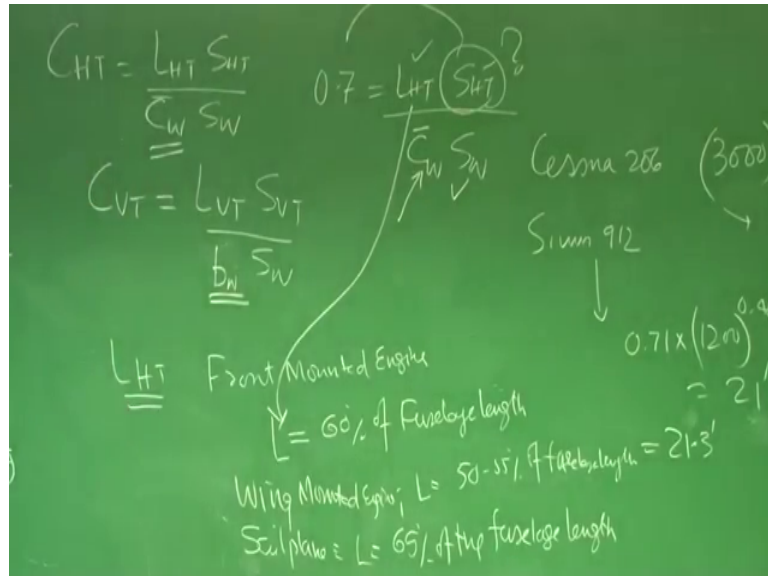 C_HT = L_HT S_HT / C̄_W S_W
0.7 = L_HT S_HT / C̄_W S_W ?
C_VT = L_VT S_VT / b_W S_W
Cessna 206 (3000)
912
0.71 x (1200)^0.4
= 21'
L_HT Front Mounted Engine
L = 60% of Fuselage length
Wing Mounted Engine; L = 50-55% of fuselage length = 21.3'
Sailplane: L = 65% of the fuselage length